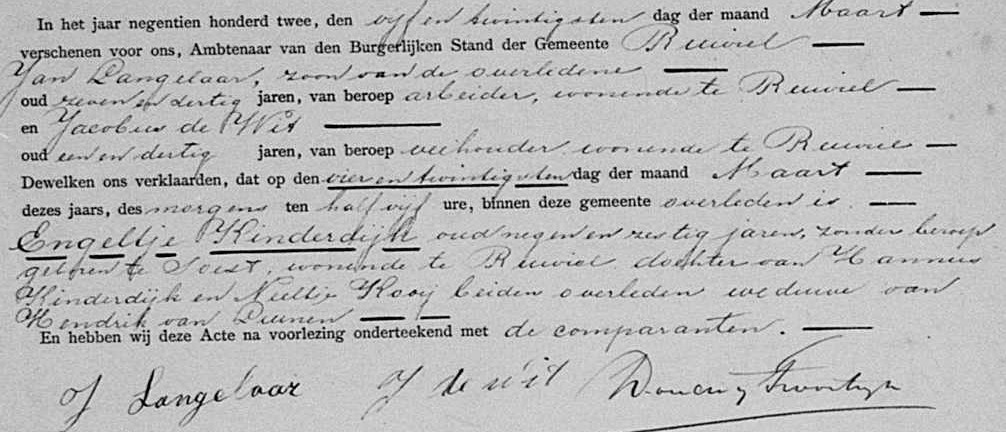 In het jaar negentien honderd twee, den vijf en twintigsten dag der maand Maart
verschenen voor ons, Ambtenaar van den Burgerlijken Stand der Gemeente Ruwiel
Jan Langelaar, zoon van de overledene
oud zeven en dertig jaren, van beroep arbeider, wonende te Ruwiel
en Jacobus de Wit
oud een en dertig jaren, van beroep veehouder wonende te Ruwiel
Dewelken ons verklaarden, dat op den vier en twintigsten dag der maand Maart
dezes jaars, des morgens ten half vijf ure, binnen deze gemeente overleden is
Engeltje Kinderdijk oud negen en zestig jaren, zonder beroep
geboren te Soest, wonende te Ruwiel dochter van Hannus
Kinderdijk en Neeltje Kooij beiden overleden weduwe van
Hendrik van
En hebben wij deze Acte na voorlezing onderteekend met de comparanten.
J Langelaar J de wit